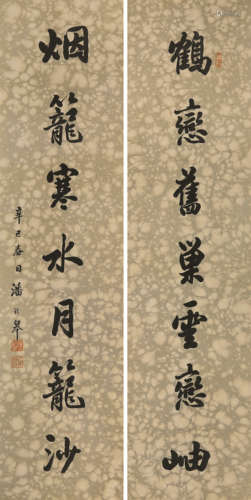 鶴戀舊巢雲戀岫
烟籠寒水月籠沙
辛巳春日潘齡皋